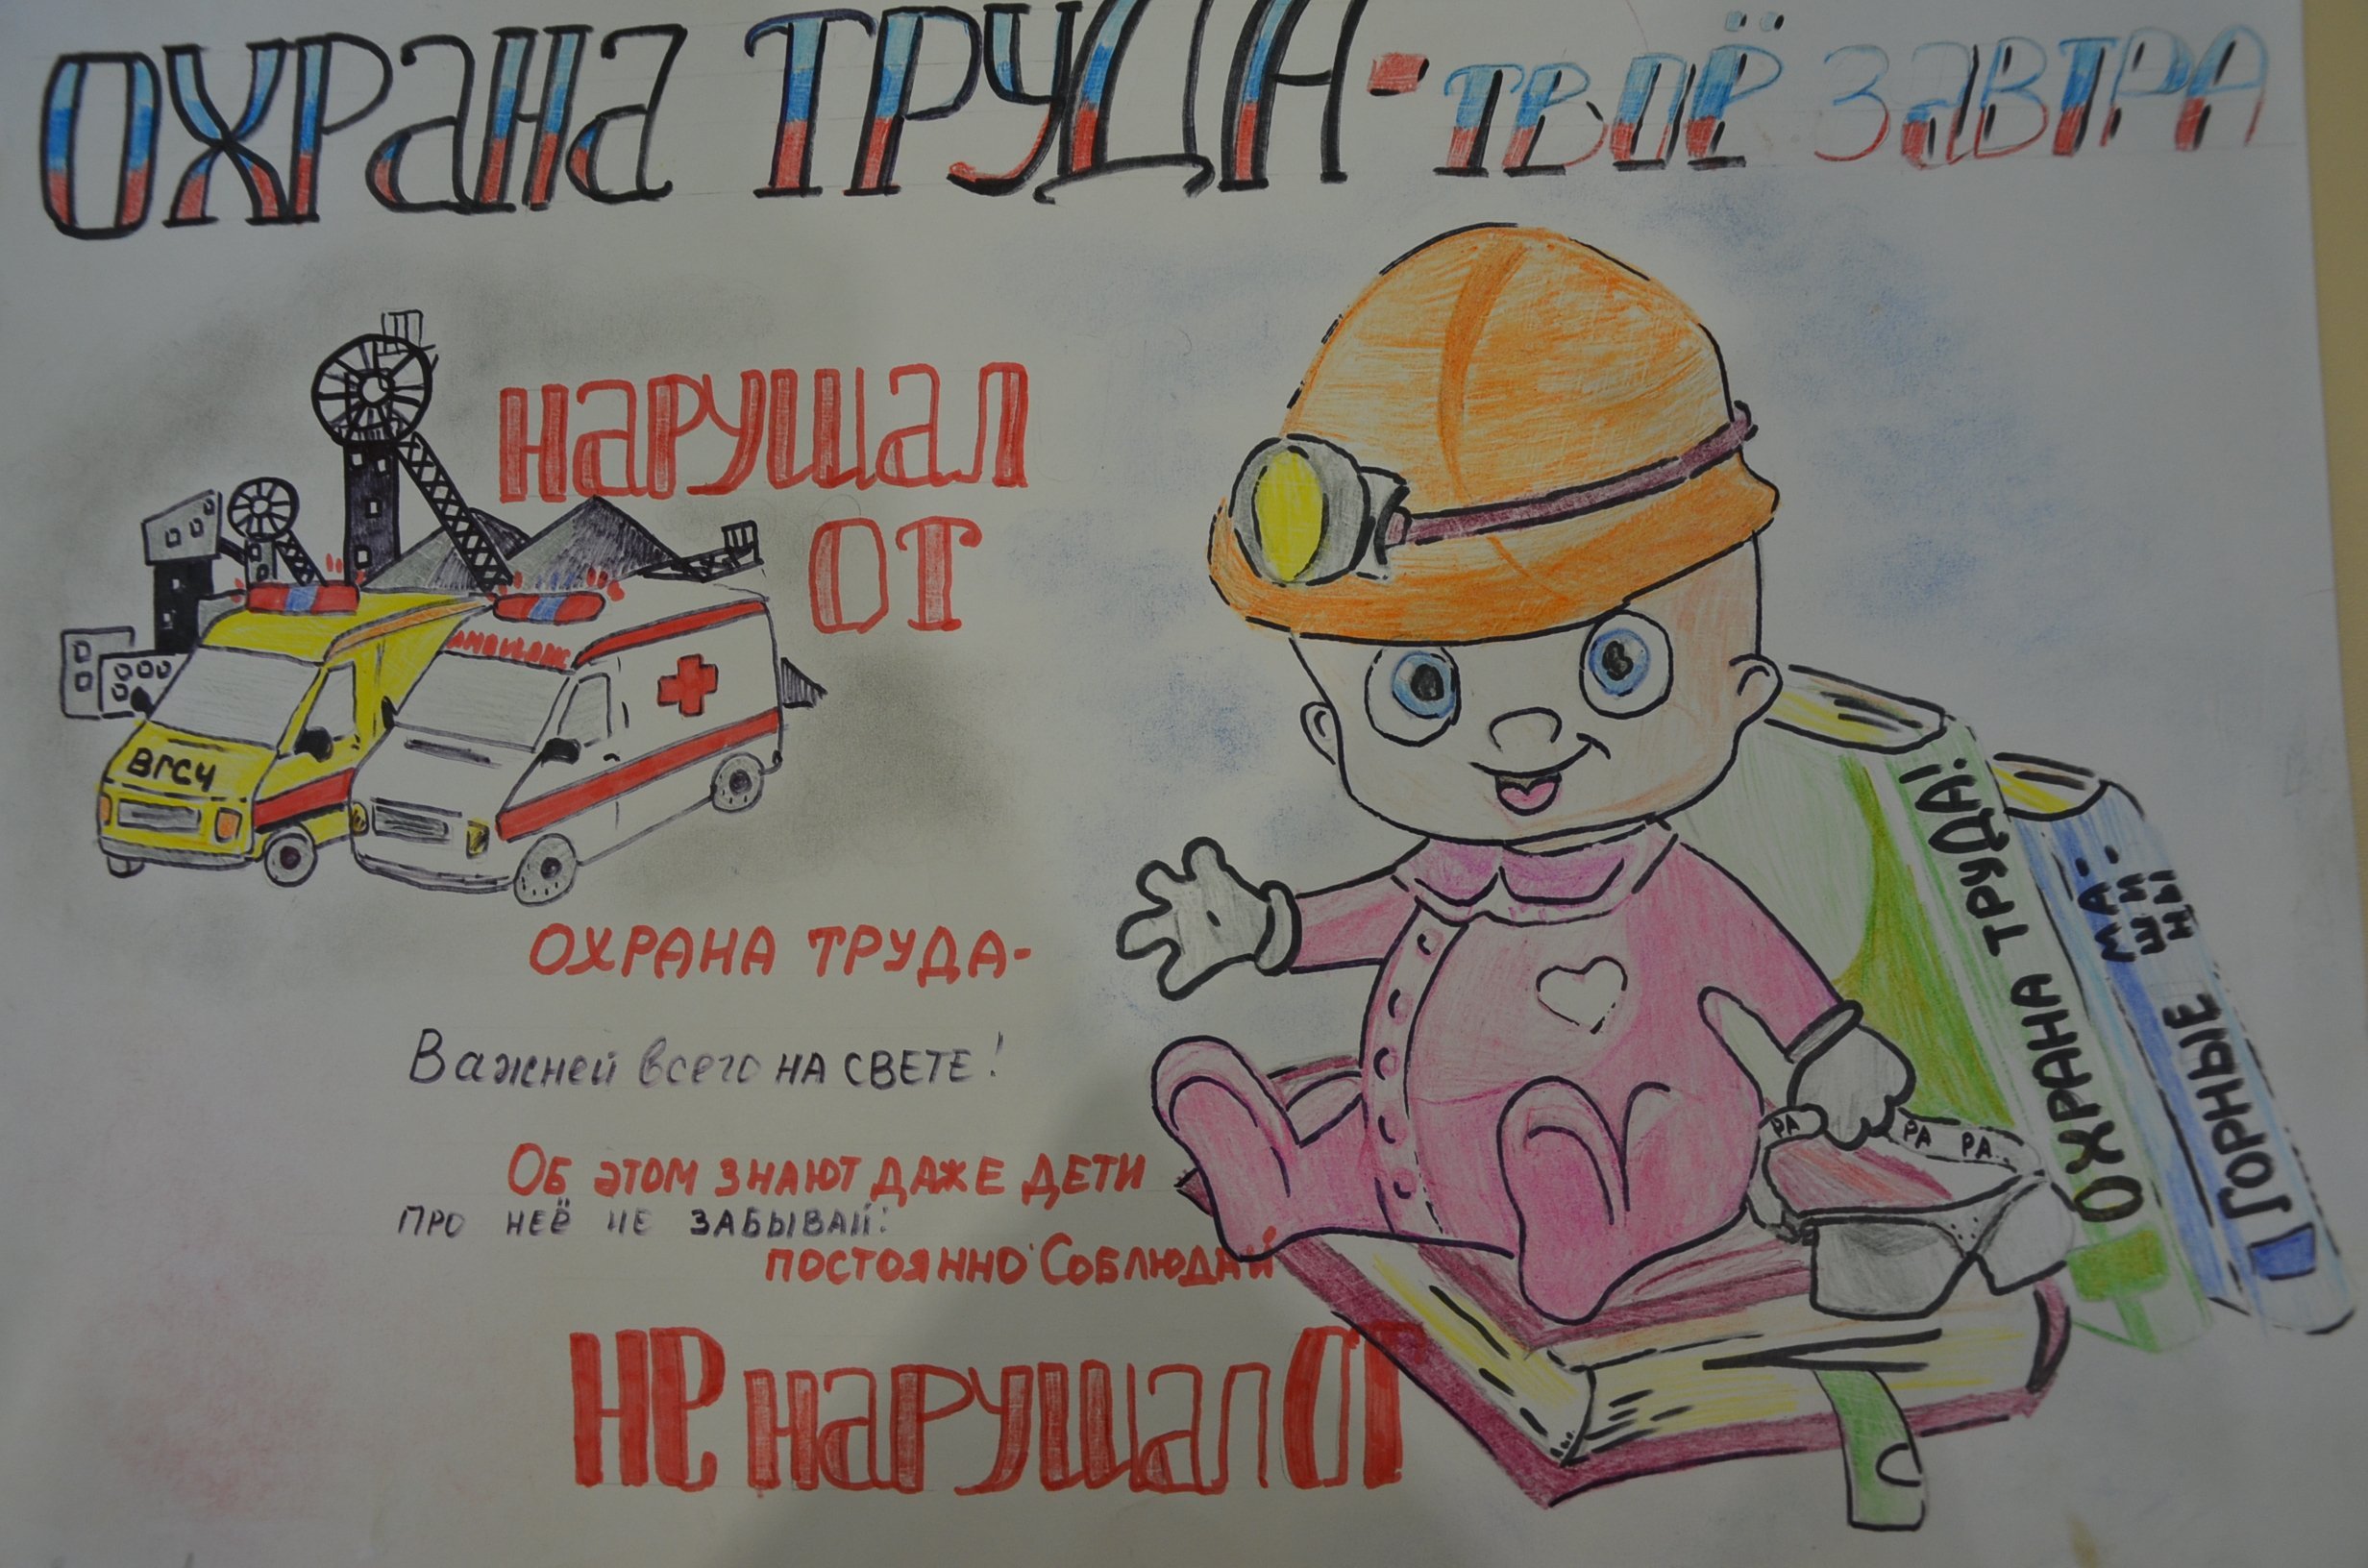 ОХРАНА ТРУДА - ТВОЁ ЗАВТРА
НАРУШАЛ
ОТ
AMBULANC
ВГСЧ
ОХРАНА ТРУДА-
Важней всего НА СВЕТЕ!
ОБ ЭТОМ ЗНАЮТ ДАЖЕ ДЕТИ
ПРО НЕЁ НЕ ЗАБЫВАЙ:
ПОСТОЯННО СОБЛЮДАЙ
НЕ НАРУШАЛ ОТ
ОХРАНА ТРУДА!
ГОРНЫЕ МА-
ШИ-
НЫ
РА РА РА